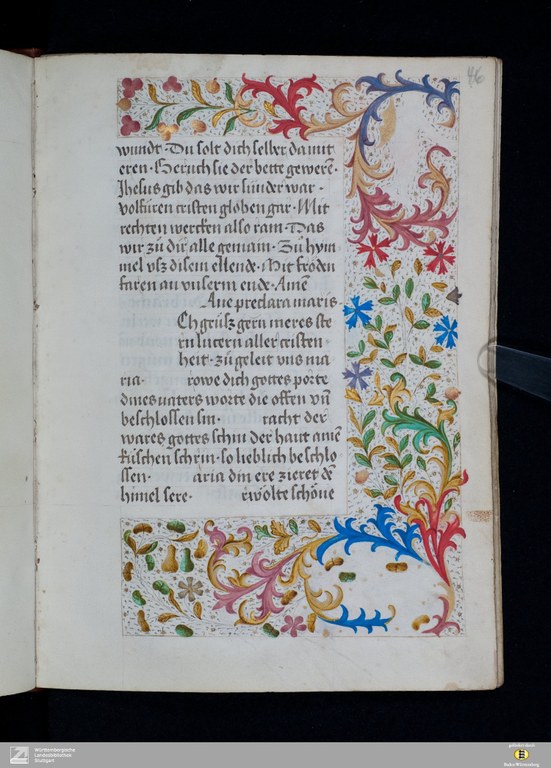 46
wundt · Du solt dich selber da mit
eren · Geruch sie der bette gewerē ·
Jhesus gib das wir sunder war ·
volfuren cristen globen gar · Mit
rechten wercken also ram · Das
wir zů dir alle gemain · Zů hym
mel vſz disem ellende · Mit froden
faren an vnserm ende · Amē
Aue preclara maris ·
Ch grüsz gern meres ste
rn lutern aller cristen
heit · zů geleit vns ma
ria · rowe dich gottes porte
dines vaters worte die offen vn̄
beschlossen sin · racht der
wares gottes schin der haut ainē
küschen schrin · so lieblich beschlo
ssen · aria din ere zieret dē
himel sere · rwolte schöne
Württembergische
Landesbibliothek
Stuttgart
gefördert durch
Baden-Württemberg